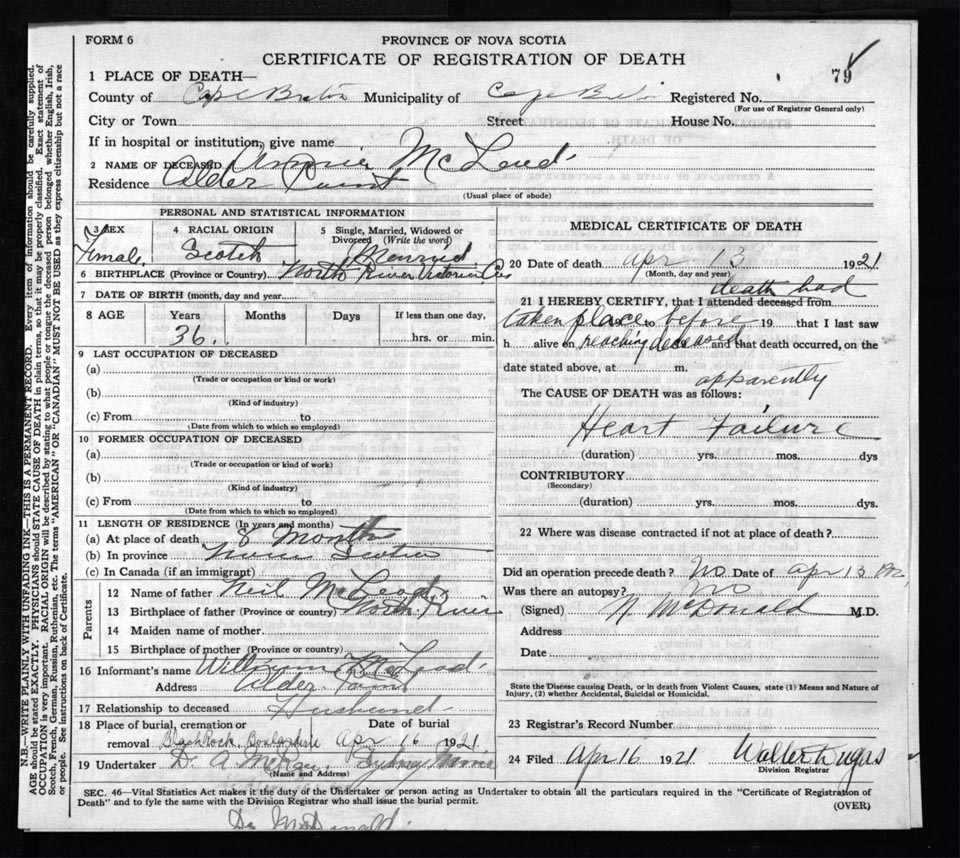 FORM 6
PROVINCE OF NOVA SCOTIA
CERTIFICATE OF REGISTRATION OF DEATH
79
1 PLACE OF DEATH—
County of Cape Breton Municipality of Cape Breton Registered No.
(For use of Registrar General only)
City or Town Street House No.
If in hospital or institution, give name
2 NAME OF DECEASED Annie McLeod
Residence Alder Point
(Usual place of abode)
PERSONAL AND STATISTICAL INFORMATION
3 SEX 4 RACIAL ORIGIN 5 Single, Married, Widowed or
Divorced (Write the word)
Female Scotch Married
6 BIRTHPLACE (Province or Country) North River Victoria Co
7 DATE OF BIRTH (month, day and year
8 AGE Years Months Days If less than one day,
36 hrs. or min.
9 LAST OCCUPATION OF DECEASED
(a)
(Trade or occupation or kind or work)
(b)
(Kind of industry)
(c) From to
(Date from which to which so employed)
10 FORMER OCCUPATION OF DECEASED
(a)
(Trade or occupation or kind of work)
(b)
(Kind of industry)
(c) From to
(Date from which to which so employed)
11 LENGTH OF RESIDENCE (In years and months)
(a) At place of death 8 Months
(b) In province Nova Scotia
(c) In Canada (if an immigrant)
Parents
12 Name of father Neil McLeod
13 Birthplace of father (Province or country) North River
14 Maiden name of mother
15 Birthplace of mother (Province or country)
16 Informant's name William McLeod
Address Alder Point
17 Relationship to deceased Husband
18 Place of burial, cremation or Date of burial
removal Black Rock, Boulardrie Apr 16 1921
19 Undertaker D. A. McRae Sydney Mines
(Name and Address)
MEDICAL CERTIFICATE OF DEATH
20 Date of death Apr 13 1921
(Month, day and year)
death had
21 I HEREBY CERTIFY, that I attended deceased from
taken place to before 19 that I last saw
h alive on reaching deceased and that death occurred, on the
date stated above, at m.
apparently
The CAUSE OF DEATH was as follows:
Heart Failure
(duration) yrs. mos. dys
CONTRIBUTORY
(Secondary)
(duration) yrs. mos. dys.
22 Where was disease contracted if not at place of death?
Did an operation precede death? No Date of Apr 13
Was there an autopsy? No
(Signed) N McDonald M.D.
Address
Date
State the Disease causing Death, or in death from Violent Causes, state (1) Means and Nature of
Injury, (2) whether Accidental, Suicidal or Homicidal.
23 Registrar's Record Number
24 Filed Apr 16 1921 Walter Dugas
Division Registrar
SEC. 46—Vital Statistics Act makes it the duty of the Undertaker or person acting as Undertaker to obtain all the particulars required in the "Certificate of Registration of
Death" and to fyle the same with the Division Registrar who shall issue the burial permit.
(OVER)
Dr McDonald.
N.B.—WRITE PLAINLY WITH UNFADING INK—THIS IS A PERMANENT RECORD. Every item of information should be carefully supplied.
AGE should be stated EXACTLY. PHYSICIANS should STATE CAUSE OF DEATH in plain terms, so that it may be properly classified. Exact statement of
OCCUPATION is very important. RACIAL ORIGIN will be described by stating to what people or tongue the deceased person belonged whether English, Irish,
Scotch, French, German, Russian, Ruthenian, etc. The terms "AMERICAN" OR "CANADIAN" MUST NOT BE USED as they express citizenship but not a race
or people. See instructions on back of Certificate.